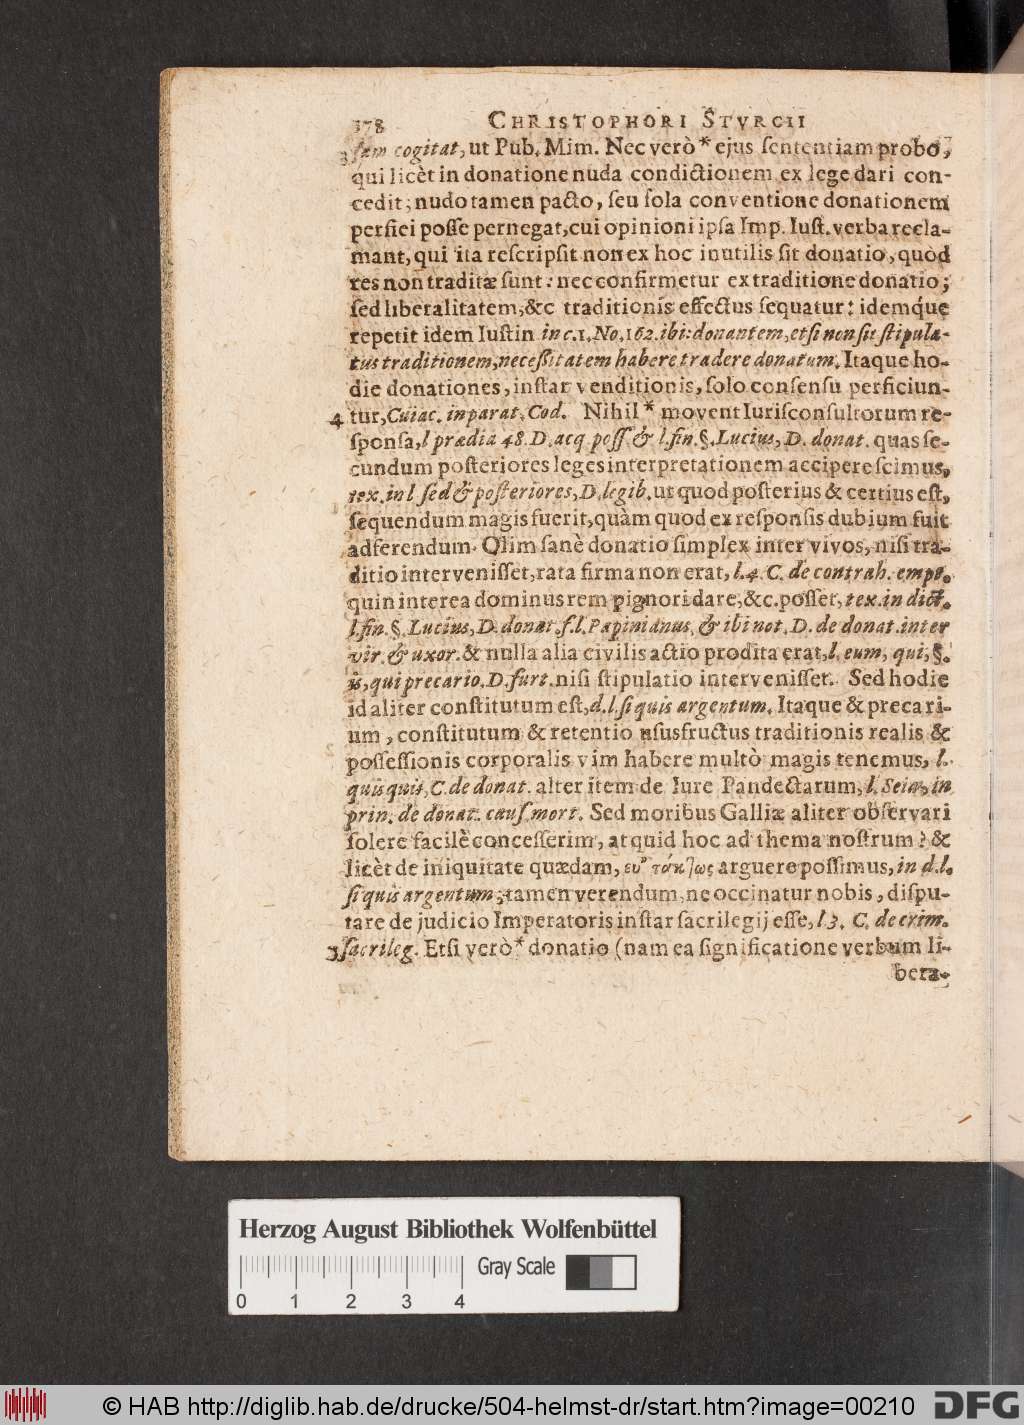 178 CHRISTOPHORI STVRCII
3 sam cogitat, ut Pub. Mim. Nec verò * ejus sententiam probo,
qui licèt in donatione nuda condictionem ex lege dari con-
cedit; nudo tamen pacto, seu sola conventione donationem
perfici posse pernegat, cui opinioni ipsa Imp. Iust. verba recla-
mant, qui ita rescripsit non ex hoc inutilis sit donatio, quòd
res non traditæ sunt: nec confirmetur ex traditione donatio;
sed liberalitatem, &c traditionis effectus sequatur: idemque
repetit idem Iustin in c. 1. No. 162. ibi: donantem, etsi non sit stipula-
tus traditionem, necessitatem habere tradere donatum. Itaque ho-
die donationes, instar venditionis, solo consensu perficiun-
4 tur, Cuiac. in parat. Cod. Nihil * movent Iurisconsultorum re-
sponsa, l prædia 48. D. acq poss & l. fin. §. Lucius, D. donat. quas se-
cundum posteriores leges interpretationem accipere scimus,
tex. in l sed & posteriores, D. legib. ut quod posterius & certius est,
sequendum magis fuerit, quàm quod ex responsis dubium fuit
adferendum. Olim sanè donatio simplex inter vivos, nisi tra-
ditio intervenisset, rata firma non erat, l. 4. C. de contrah. empt.
quin interea dominus rem pignori dare, &c. posset, tex. in dict.
l. fin. §. Lucius, D. donat. f. l. Papinianus, & ibi not. D. de donat. inter
vir. & uxor. & nulla alia civilis actio prodita erat, l. eum, qui, §.
is, qui precario. D. furt. nisi stipulatio intervenisset. Sed hodie
id aliter constitutum est, d. l. si quis argentum. Itaque & precari-
um, constitutum & retentio ususfructus traditionis realis &
possessionis corporalis vim habere multò magis tenemus, l.
quisquis, C. de donat. alter item de Iure Pandectarum, l. Seia, in
prin. de donat. caus. mort. Sed moribus Galliæ aliter observari
solere facilè concesserim, at quid hoc ad thema nostrum? &
licèt de iniquitate quædam, arguere possimus, in d. l.
si quis argentum; tamen verendum, ne occinatur nobis, dispu-
tare de judicio Imperatoris instar sacrilegij esse, l 3. C. de crim.
3 sacrileg. Etsi verò * donatio (nam ea significatione verbum li-
bera-
Herzog August Bibliothek Wolfenbüttel
Gray Scale
0 1 2 3 4
© HAB http://diglib.hab.de/drucke/504-helmst-dr/start.htm?image=00210
DFG